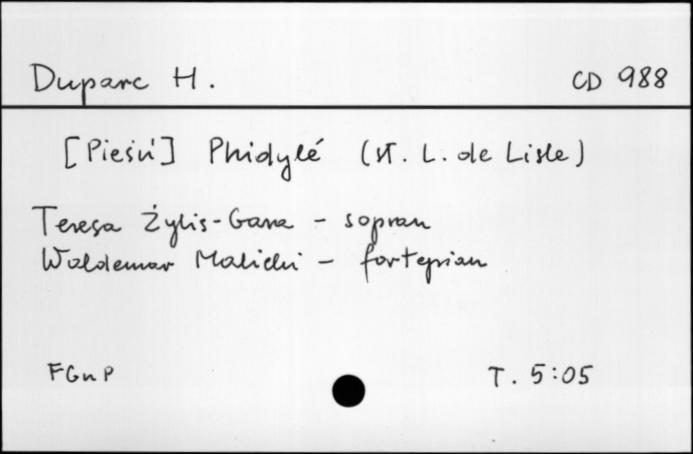 Duparc H. CD 988
[Pieśń] Phidylé (sł. L. de Lisle)
Teresa Żylis-Gara - sopran
Waldemar Malicki - fortepian
FGnP T. 5:05